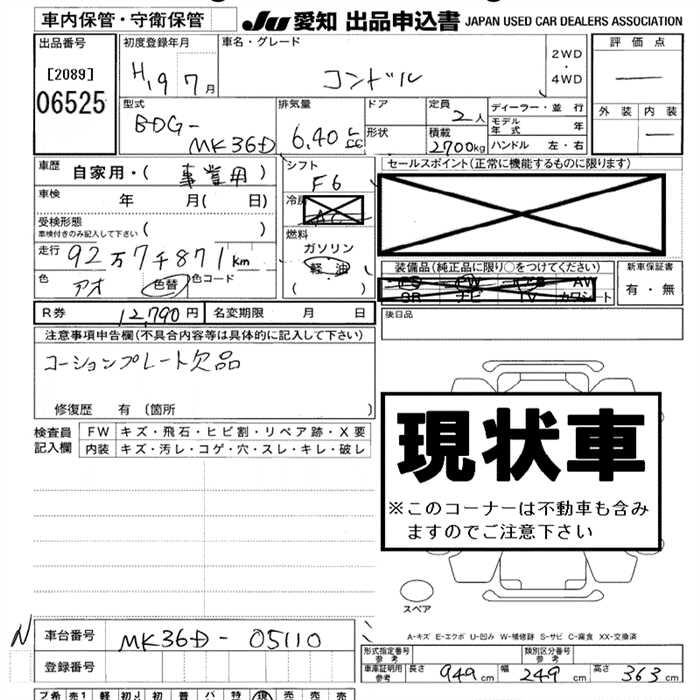 車内保管・守衛保管
JU 愛知 出品申込書 JAPAN USED CAR DEALERS ASSOCIATION
出品番号 初度登録年月 車名・グレード 評価点
[2089]
06525
H19 7月 コンドル 2WD・4WD —
型式 排気量 ドア 定員 ディーラー・並行 外装 内装
BDG-MK36D 6.40 L cc 形状 2人 モデル年式 年 —
積載 2700kg ハンドル 左・右
車歴 自家用・(事業用) シフト F6 セールスポイント(正常に機能するものに限ります)
車検 年 月( 日) 冷房 AC
受検形態 車検付きのみ記入して下さい ( )
燃料 ガソリン 軽油 ( )
走行 92万7千871km
色 アオ 色替 色コード
装備品(純正品に限り○をつけてください) 新車保証書
PS PW AW
SR ナビ TV カワシート 有・無
R券 12,790円 名変期限 月 日 後日品
注意事項申告欄(不具合内容等は具体的に記入して下さい)
コーションプレート欠品
修復歴 有 (箇所 )
検査員記入欄 FW キズ・飛石・ヒビ割・リペア跡・X要
内装 キズ・汚レ・コゲ・穴・スレ・キレ・破レ
現状車
※このコーナーは不動車も含み
ますのでご注意下さい
スペア
A-キズ E-エクボ U-凹み W-補修跡 S-サビ C-腐食 XX-交換済
N 車台番号 MK36D-05110
登録番号
形式指定番号 参考 類別区分番号 参考
車庫証明用 参考 長さ 949cm 幅 249cm 高さ 363cm
プ希 売1 軽 初J 普 パ 特 現 売 売 売